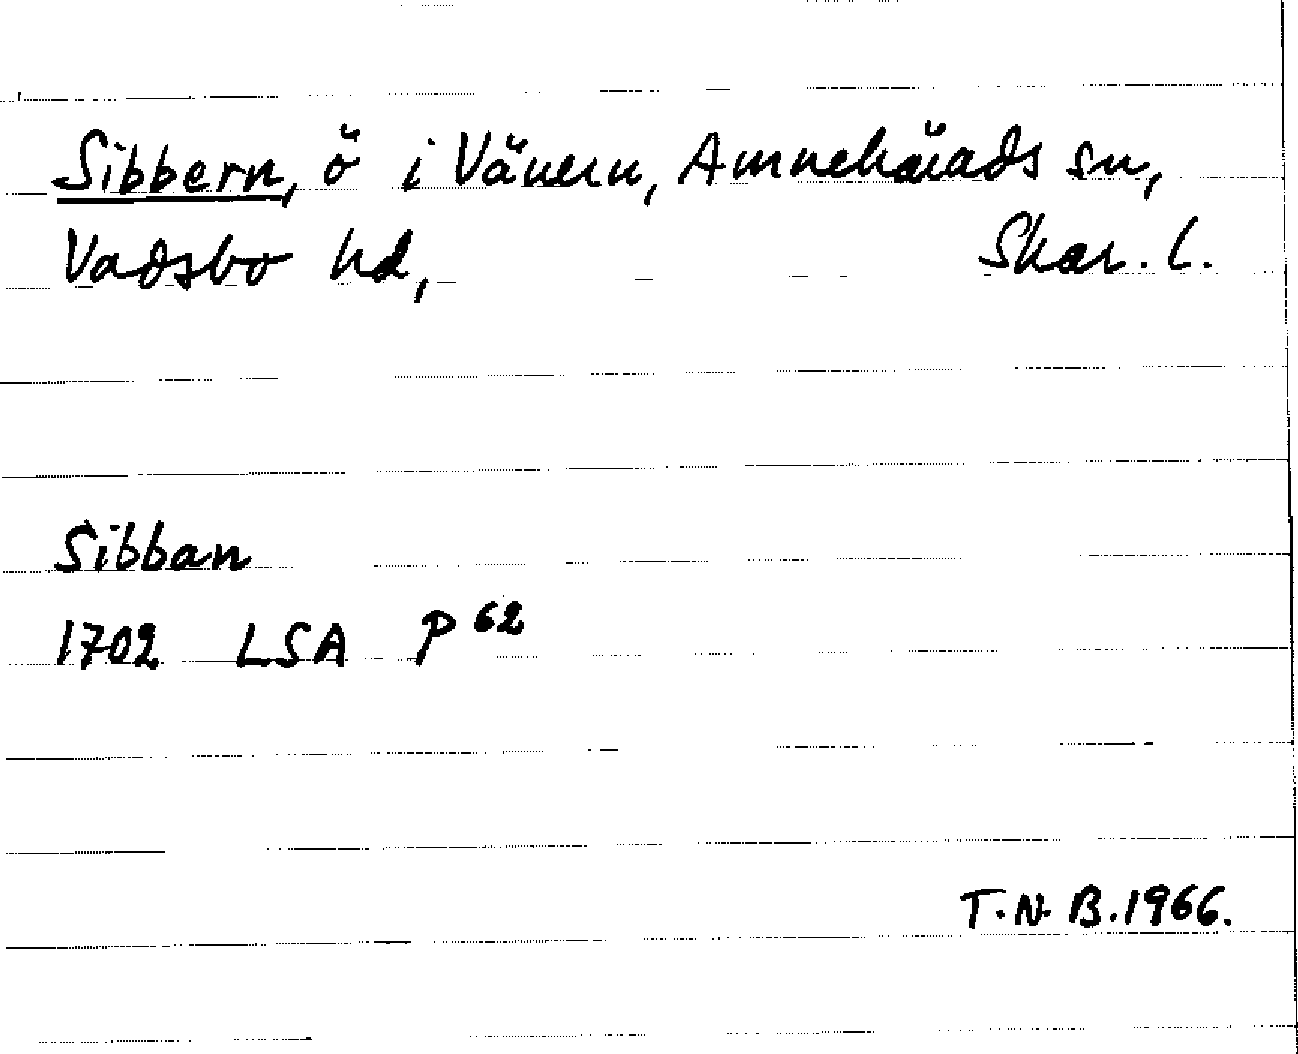 Sibbern, ö i Vänern, Amnehärads sn,
Vadsbo hd, Skar. l.
Sibban
1702 LSA P 62
T.N.B. 1966.